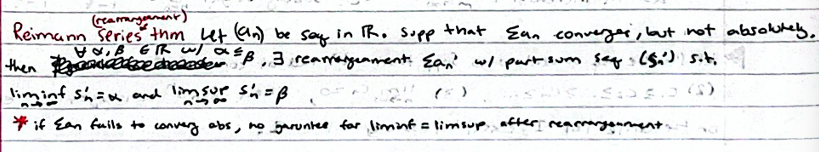 (rearrangement)
Reimann Series thm Let (an) be seq in ℝ. Supp that Σan converges, but not absolutely.
then ∀ α, β ∈ ℝ w/ α ≤ β, ∃ rearrangement Σan' w/ part sum seq (sn') s.t.
liminf n→∞ s'n = α and limsup n→∞ s'n = β
* if Σan fails to converg abs, no garuntee for liminf = limsup after rearrangement